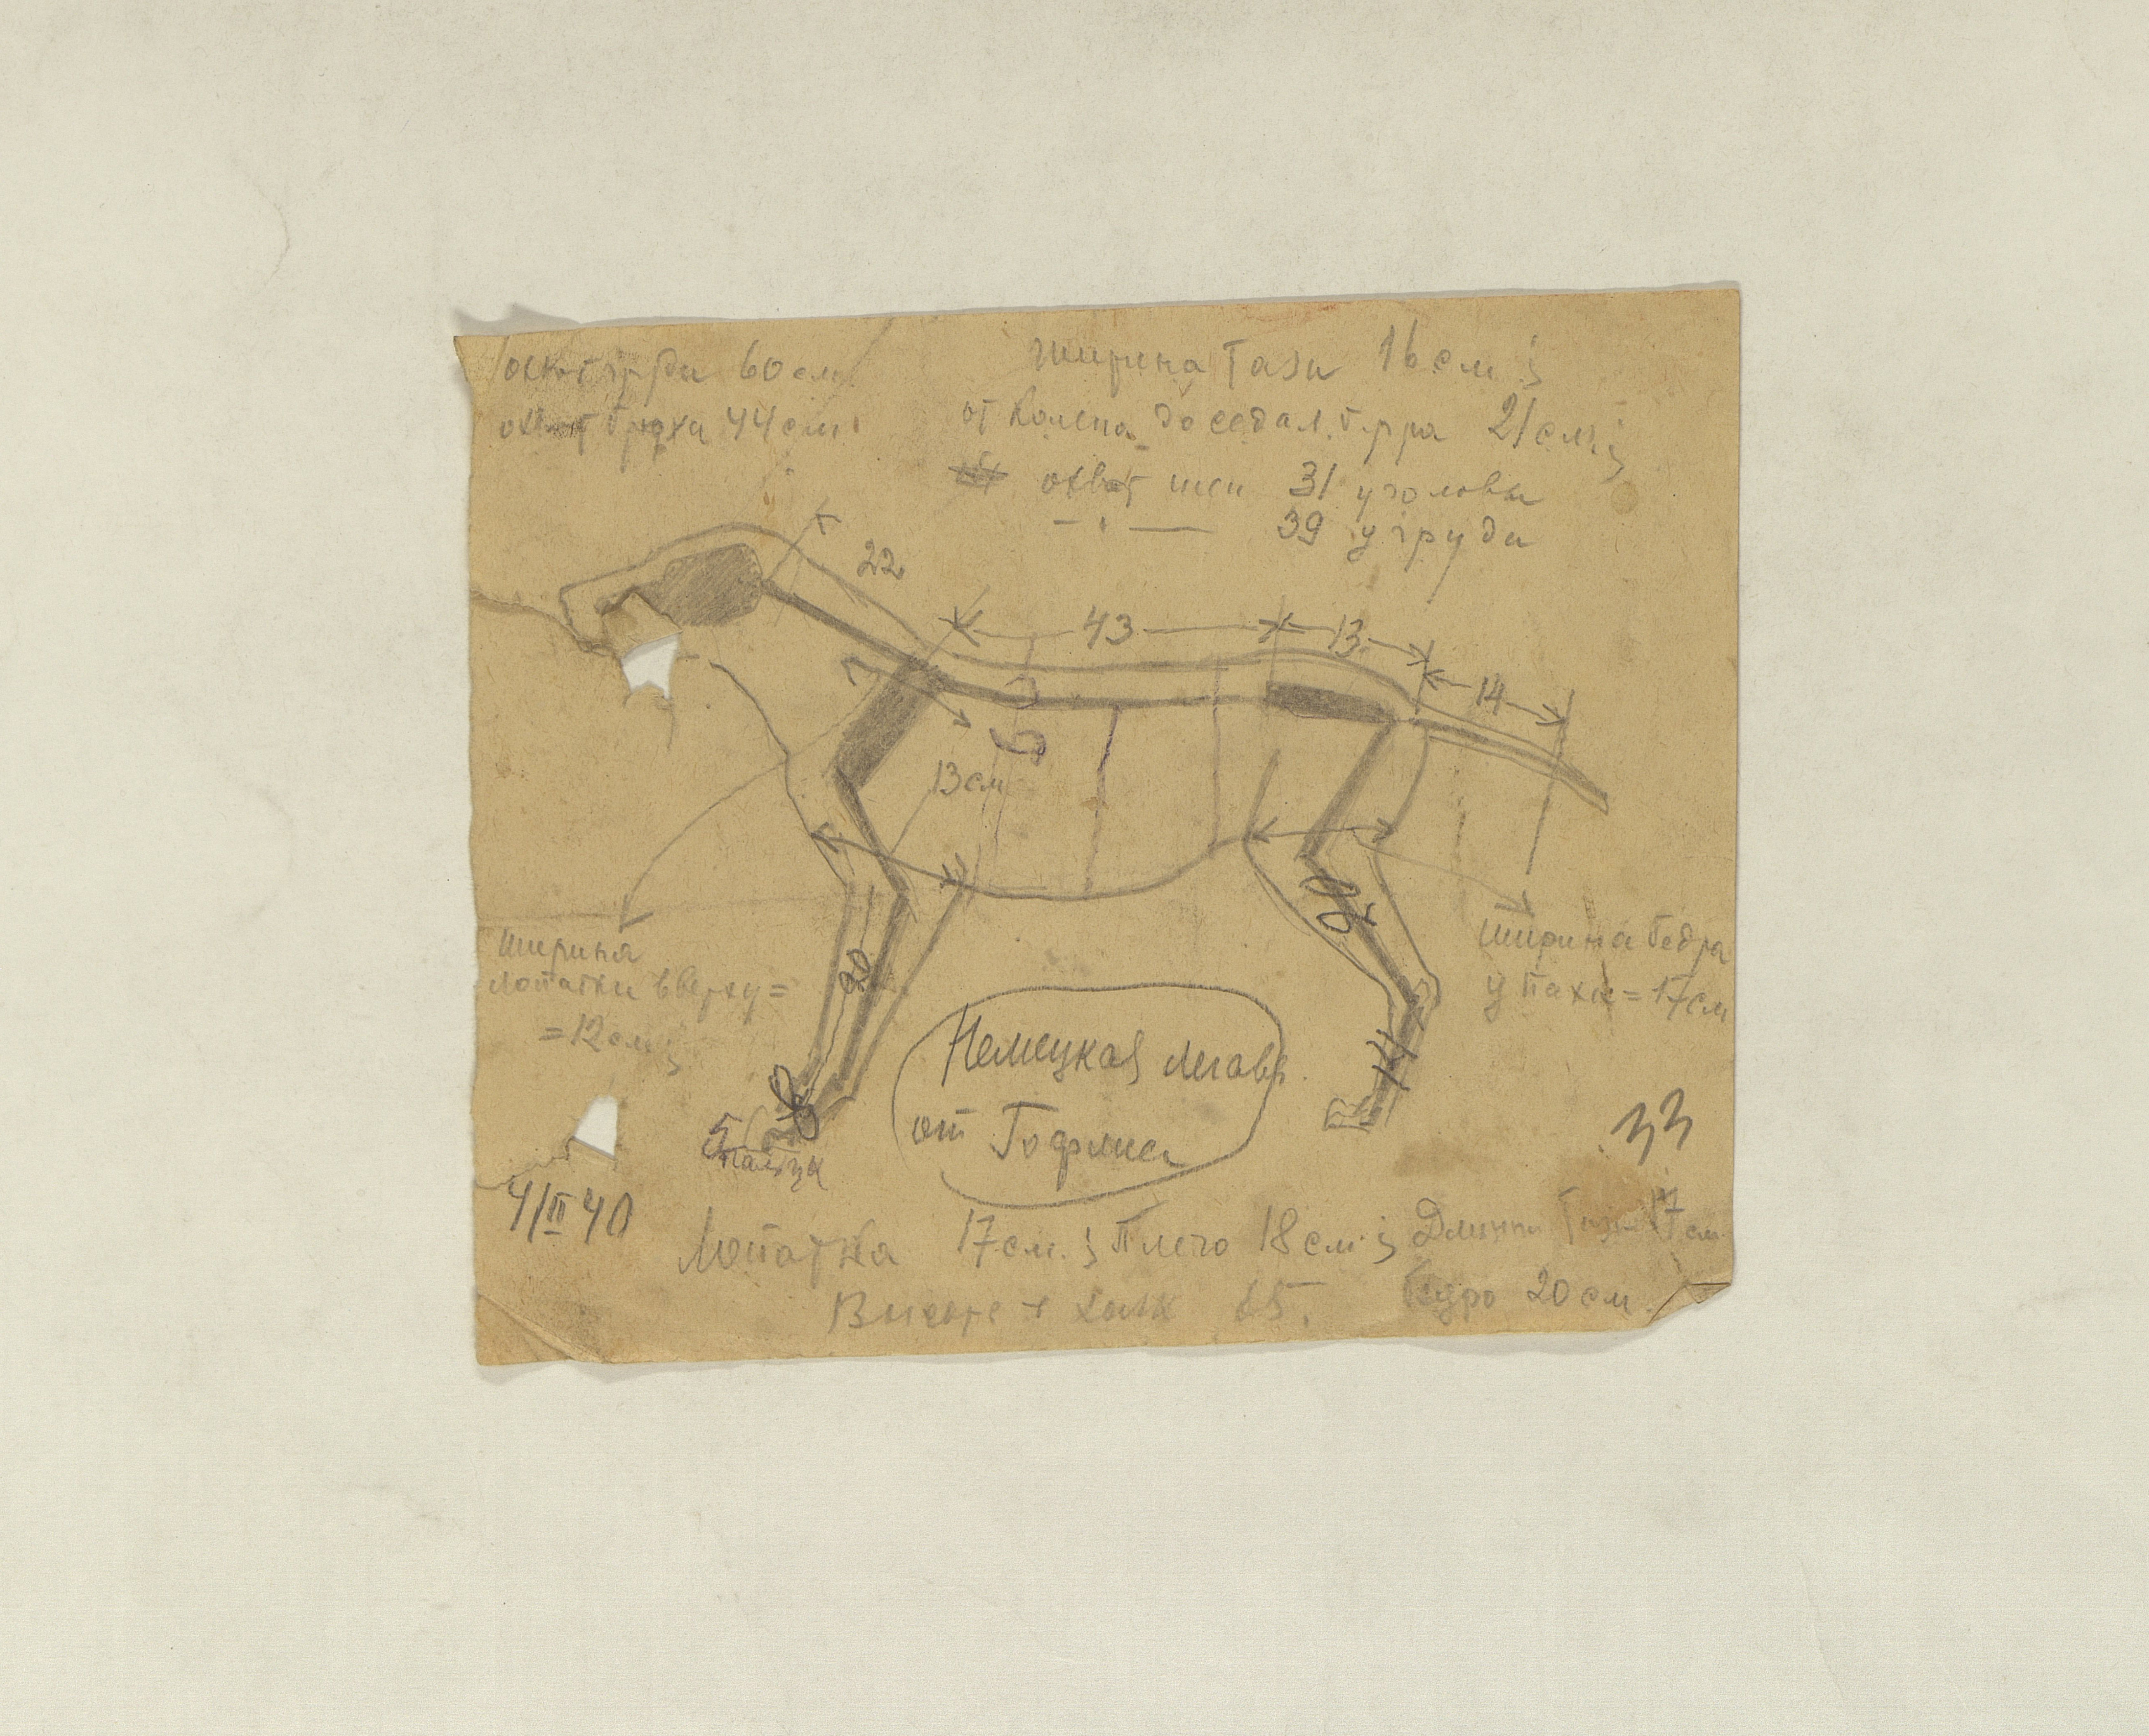 охват груди 60 см
охват брюха 44 см
ширина таза 16 см;
от колена до седал. бугра 21 см;
охват шеи 31 у головы
— " — 39 у груди
22
43
13
14
13 см
20
ширина
лопатки вверху =
= 12 см;
ширина бедра
у паха = 17 см
Немецкая легав.
от Гофмана
8
5
пальцы
33
4/III 40
Лопатка 17 см.; плечо 18 см.; Длина таза 17 см
Высота в холк 65.
бедро 20 см.